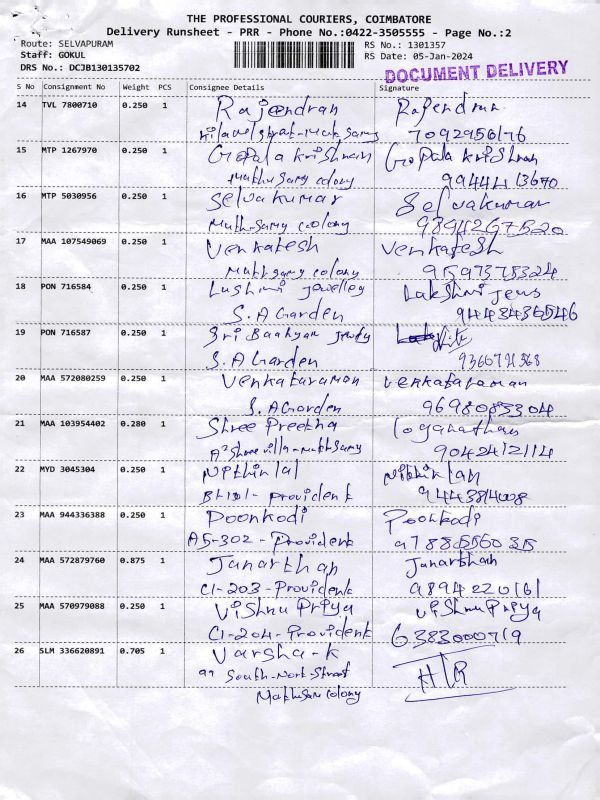 THE PROFESSIONAL COURIERS, COIMBATORE
Delivery Runsheet - PRR - Phone No.:0422-3505555 - Page No.:2
Route: SELVAPURAM RS No.: 1301357
Staff: GOKUL RS Date: 05-Jan-2024
DRS No.: DCJB130135702 DOCUMENT DELIVERY
S No Consignment No Weight PCS Consignee Details Signature
14 TVL 7800710 0.250 1 Rajendran Rajendran
7092956176
15 MTP 1267970 0.250 1 Gopala Krishnan Gopala Krishnan
Muthusamy colony 9944413670
16 MTP 5030956 0.250 1 Selvakumar Selvakumar
Muthusamy colony 9894267520
17 MAA 107549069 0.250 1 Venkatesh Venkatesh
Muthusamy colony
18 PON 716584 0.250 1 Lushmi jewelley Lakshmi jews
S.A Garden
19 PON 716587 0.250 1 Sri
S.A Garden
20 MAA 572080259 0.250 1 Venkataraman Venkataraman
S.A Garden 9698085304
21 MAA 103954402 0.280 1 Shree Preetha loganathan
9042412114
22 MYD 3045304 0.250 1 Nithin lal Nithin lal
Provident
23 MAA 944336388 0.250 1 Poonkodi Poonkodi
A5-302 - Provident 9788556035
24 MAA 572879760 0.875 1 Janarthan Janarthan
C1-203 - Provident 9894220161
25 MAA 570979088 0.250 1 Vishnu Priya Vishnu Priya
C1-204 - Provident 6383000719
26 SLM 336620891 0.705 1 Varsha-K
99 South-North-Street
Muthusamy colony